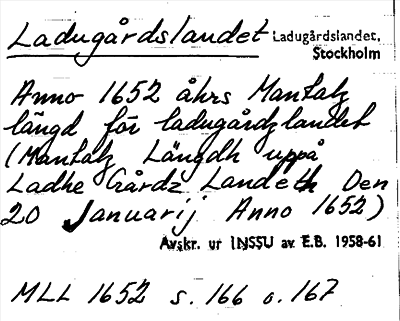 Ladugårdslandet
Ladugårdslandet,
Stockholm
Anno 1652 åhrs Mantalz
längd för ladugårdzlandet
(Mantalz Längdh uppå
Ladhe Gårdz Landeth Den
20 Januarij Anno 1652)
Avskr. ur INSSU av E.B. 1958-61
MLL 1652 s. 166 o. 167